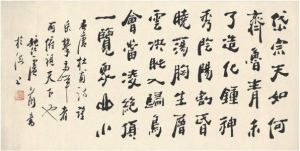 岱宗夫如何
齊魯青未
了造化鍾神
秀陰陽割昏
曉蕩胸生曾
雲決眥入歸鳥
會當凌絕頂
一覽眾山小
唐杜甫詩
俯視天下也